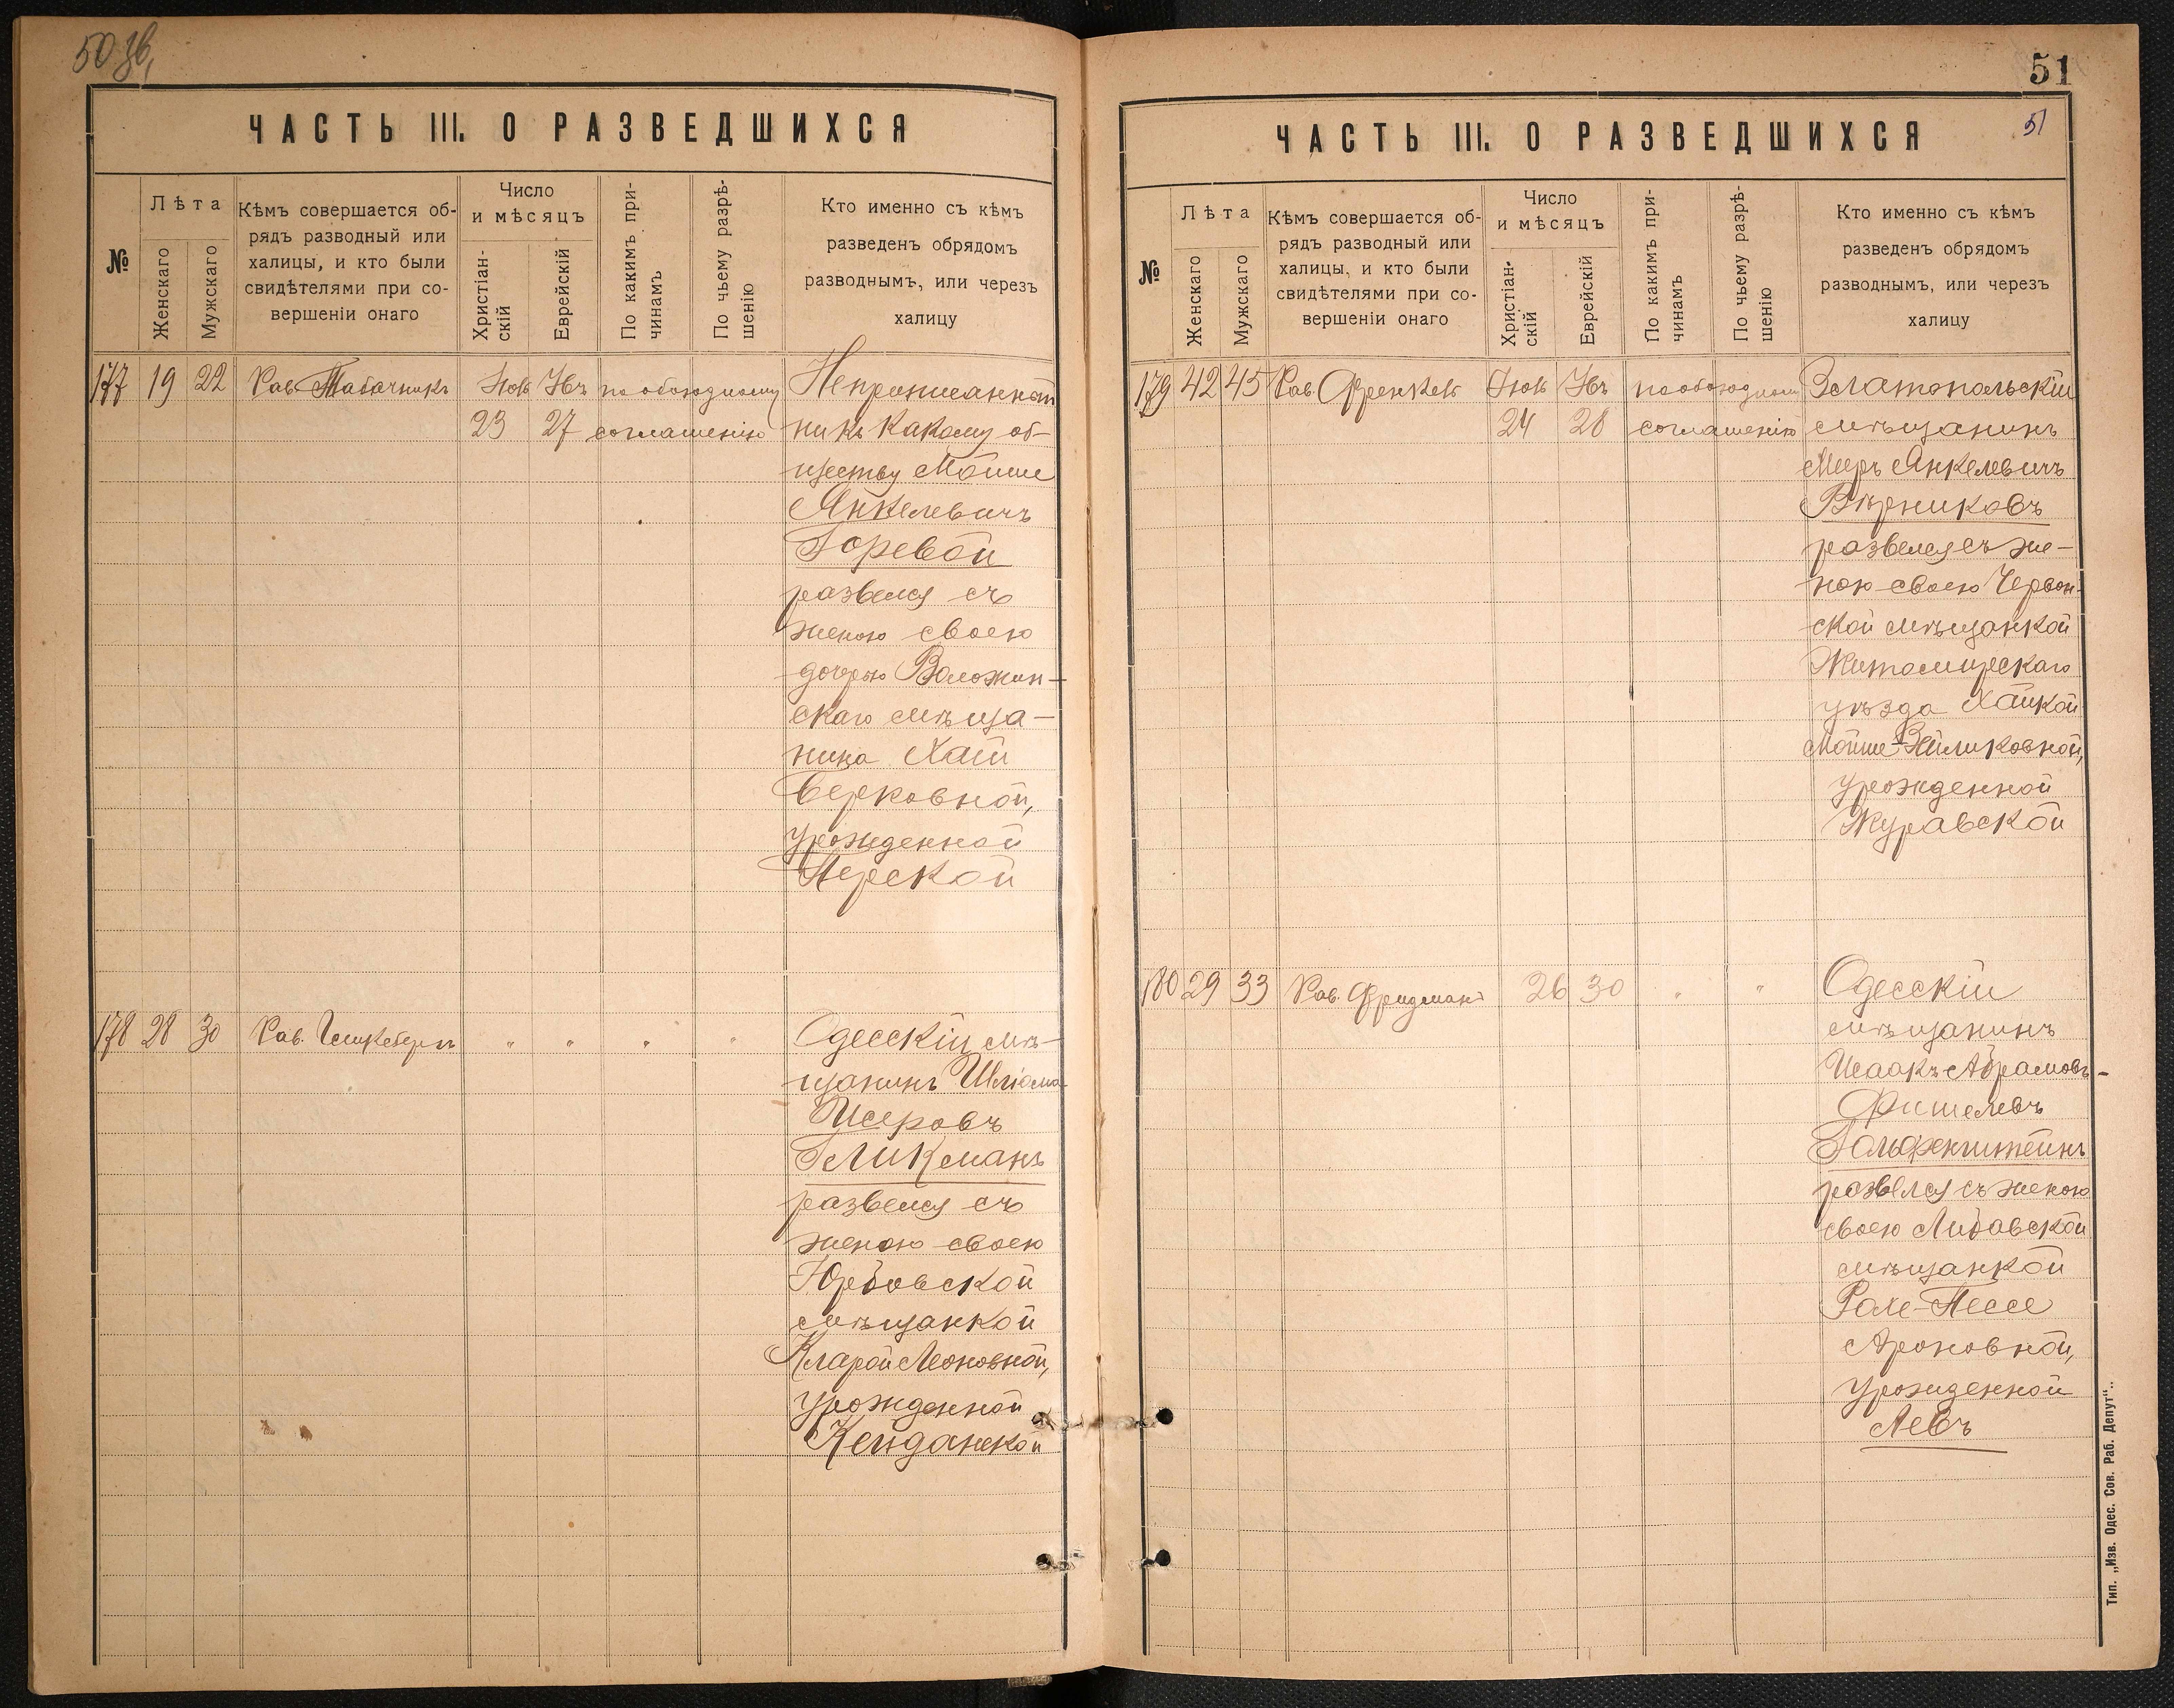 50 зв,
ЧАСТЬ III. О РАЗВЕДШИХСЯ
№
Лѣта
Женскаго
Мужскаго
Кѣмъ совершается об-
рядъ разводный или
халицы, и кто были
свидѣтелями при со-
вершеніи онаго
Число
и мѣсяцъ
Христіан-
скій
Еврейскій
По какимъ при-
чинамъ
По чьему разрѣ-
шенію
Кто именно съ кѣмъ
разведенъ обрядомъ
разводнымъ, или черезъ
халицу
177 19 22 Рав. Табачникъ
23 27
по обоюдному
соглашенію
ни къ какому об-
ществу Мойше
Янкелевичъ
Горевой
развелся съ
женою своею
дочерью Воложин-
скаго мѣща-
нина Хаей
Берковной,
урожденной
Перской
178 28 30 Рав. " " " "
Одесскій мѣ-
щанинъ Шліома
Исеровъ
Гликманъ
развелся съ
женою своею
Юрбовской
мѣщанкой
Кларой Леоновной,
урожденной
Кейданской
51
51
ЧАСТЬ III. О РАЗВЕДШИХСЯ
№
Лѣта
Женскаго
Мужскаго
Кѣмъ совершается об-
рядъ разводный или
халицы, и кто были
свидѣтелями при со-
вершеніи онаго
Число
и мѣсяцъ
Христіан-
скій
Еврейскій
По какимъ при-
чинамъ
По чьему разрѣ-
шенію
Кто именно съ кѣмъ
разведенъ обрядомъ
разводнымъ, или черезъ
халицу
179 42 45 Рав. Френкель
24 28
по обоюдному
соглашенію
Златопольскій
мѣщанинъ
Мееръ Янкелевичъ
Вѣрниковъ
развелся съ же-
ною своею Червон-
ской мѣщанкой
Житомирскаго
уѣзда Хайкой
Мойше-Зейликовной,
урожденной
Журавской
180 29 33 Рав. Фридманъ 26 30 " "
Одесскій
мѣщанинъ
Исаакъ Абрамовъ-
Фишелевъ
Гольфенштейнъ
развелся съ женою
своею Либавской
мѣщанкой
Рохе-Песе
Ароновной,
урожденной
Левъ
Тип. „Изв. Одес. Сов. Раб. Депут"..